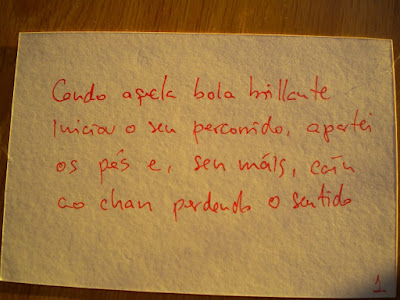 Cando aquela bola brillante
iniciou o seu percorrido, apartei
os pés e, sen máis, caín
ao chan perdendo o sentido
1